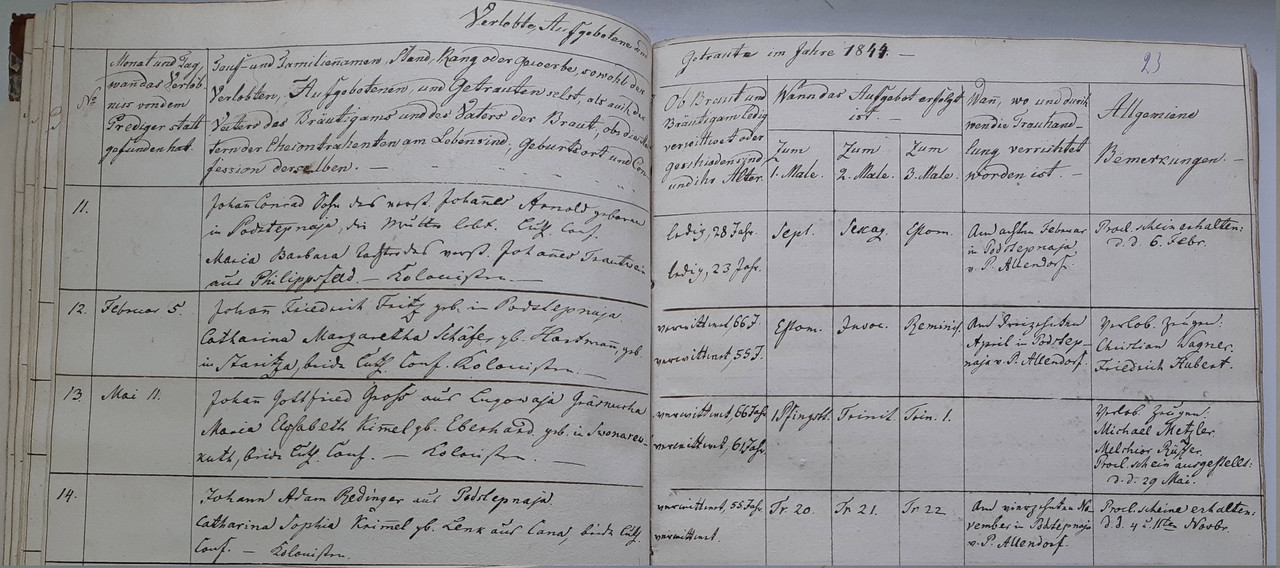 Verlobte, Aufgebotene und
Getraute im Jahre 1844. —
23
No
Monat und Tag,
wan̄ das Verlöb-
niss von dem
Prediger statt
gefunden hat.
Tauf- und Familienamen, Stand, Rang oder Gewerbe, sowohl der
Verlobten, Aufgebotenen, und Getrauten selbst, als auch des
Vaters des Bräutigams und des Vaters der Braut, ob die Ael-
tern der Ehecontrahenten am Leben sind; Geburtsort und Con-
fession derselben. —
Ob Braut und
Bräutigam ledig
verwittwet oder
geschieden sind
und ihr Alter.
Wann das Aufgebot erfolgt
ist. —
Zum
1. Male.
Zum
2. Male.
Zum
3. Male.
Wan̄, wo und durch
wen die Trauhand-
lung verrichtet
worden ist. —
Allgemeine
Bemerkungen. —
11.
Johan̄ Conrad Sohn des verst. Johannes Arnold geboren
in Podstepnaja, die Mutter lebt. Luth. Conf.
Maria Barbara Tochter des verst. Johannes Trautwein
aus Philippsfeld. — Kolonisten. —
ledig, 28 Jahr.
ledig, 23 Jahr.
Sept.
Sexag.
Estom.
Am achten Februar
in Podstepnaja
v. P. Allendorf.
Procl. schein erhalten:
d. d. 6. Febr.
12.
Februar 5.
Johan̄ Friedrich Fritz geb. in Podstepnaja.
Catharina Margaretha Schäfer, gb. Hardman̄, geb.
in Staritza, beide Luth. Conf. Kolonisten. —
verwittwet, 66 J.
verwittwet, 55 J.
Estom.
Invoc.
Reminis.
Am dreizehnten
April in Podstep-
naja v. P. Allendorf.
Verlob. Zeugen:
Christian Wagner.
Friedrich Hubert.
13.
Mai 11.
Johan̄ Gottfried Gross aus Lugowaja Gräsnucha
Maria Elisabeth Kimmel gb. Eberhard, geb. in Swonarew-
kuth, beide Luth. Conf. — Kolonisten. —
verwittwet, 66 Jahr
verwittwet, 61 Jahr.
1 Pfingstt.
Trinit.
Trin. 1.
Verlob. Zeugen:
Michael Metzler.
Melchior
Procl. schein ausgestellt:
d. d. 29 Mai.
14.
Johann Adam Bedinger aus Podstepnaja.
Catharina Sophia Kimmel gb. Lenk aus Cana, beide Luth.
Conf. — Kolonisten.
verwittwet, 55 Jahr
verwittwet.
Tr. 20.
Tr. 21.
Tr. 22.
Am vierzehnten No-
vember in Podstepnaja
v. P. Allendorf.
Procl. scheine erhalten:
d. d. 4 u. 11ten Novbr.